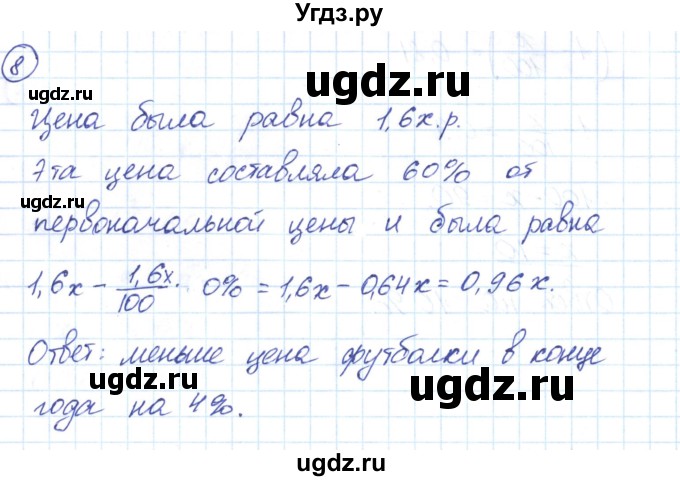 Угдз.ру
8
ugdz.ru
ugdz.ru
Цена была равна 1,6x.р.
Эта цена составляла 60% от
ugdz.ru
ugdz.ru
первоначальной цены и была равна
1,6x - 1,6x/100 · 0% = 1,6x - 0,64x = 0,96x.
ugdz.ru
Ответ: меньше цена футболки в конце
ugdz.ru
года на 4%.
ugdz.ru
ugdz.ru